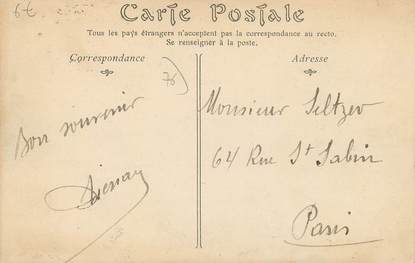 6€
Carte Postale
Tous les pays étrangers n'acceptent pas la correspondance au recto.
Se renseigner à la poste.
Correspondance
Adresse
76
Bon souvenir
Monsieur Seltzer
64 Rue St Sabin
Paris